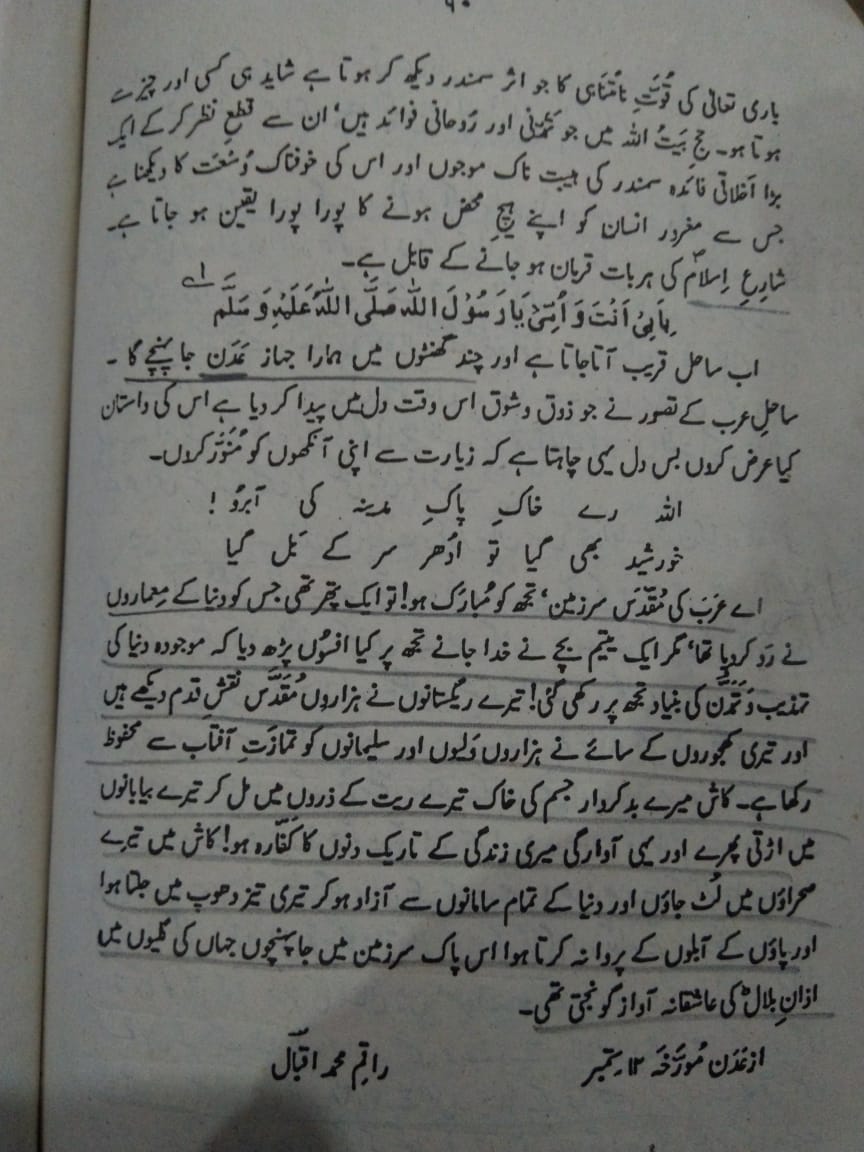 ۶۰
باری تعالیٰ کی قُوّتِ نامُتناہی کا جو اثر سمندر دیکھ کر ہوتا ہے شاید ہی کسی اور چیز سے
ہوتا ہو۔ حجِ بَیتُ اللہ میں جو تَمدُّنی اور رُوحانی فوائد ہیں، ان سے قطعِ نظر کر کے ایک
بڑا اَخلاقی فائدہ سمندر کی ہیبت ناک موجوں اور اس کی خوفناک وُسْعَت کا دیکھنا ہے
جس سے مغرور انسان کو اپنے ہیچِ محض ہونے کا پورا پورا یقین ہو جاتا ہے۔
شارِعِ اِسلامؐ کی ہر بات قربان ہو جانے کے قابل ہے۔
بِاَبِیْ اَنْتَ وَ اُمِّیْ یَا رَسُوْلَ اللّٰہ صَلَّی اللّٰہُ عَلَیْہِ وَسَلَّم ۱؎
اب ساحل قریب آتا جاتا ہے اور چند گھنٹوں میں ہمارا جہاز عَدَن جا پہنچے گا۔
ساحلِ عرب کے تصور نے جو ذوق و شوق اس وقت دل میں پیدا کر دیا ہے اس کی داستان
کیا عرض کروں بس دل یہی چاہتا ہے کہ زیارت سے اپنی آنکھوں کو مُنَوَّر کروں۔
اللہ رے خاکِ پاکِ مدینہ کی آبرُو !
خورشید بھی گیا تو اُدھر سر کے بَل گیا
اے عَرَب کی مُقدَّس سرزمین، تجھ کو مُبارَک ہو! تو ایک پتھر تھی جس کو دنیا کے مِعماروں
نے رَد کر دیا تھا، مگر ایک یتیم بچے نے خدا جانے تجھ پر کیا افسُوں پڑھ دیا کہ موجودہ دنیا کی
تہذیب و تَمَدُّن کی بنیاد تجھ پر رکھی گئی! تیرے ریگستانوں نے ہزاروں مُقَدَّس نقشِ قدم دیکھے ہیں
اور تیری کھجوروں کے سائے نے ہزاروں وَلیوں اور سلیمانوں کو تمازَتِ آفتاب سے محفوظ
رکھا ہے۔ کاش میرے بدکردار جسم کی خاک تیرے ریت کے ذروں میں مل کر تیرے بیابانوں
میں اڑتی پھرے اور یہی آوارگی میری زندگی کے تاریک دنوں کا کفّارہ ہو! کاش میں تیرے
صحراؤں میں لُٹ جاؤں اور دنیا کے تمام سامانوں سے آزاد ہو کر تیری تیز دھوپ میں جلتا ہوا
اور پاؤں کے آبلوں کے پروا نہ کرتا ہوا اس پاک سرزمین میں جا پہنچوں جہاں کی گلیوں میں
اذانِ بلالؓ کی عاشقانہ آواز گونجتی تھی۔
از عَدَن مُورَّخَہ ۱۲ ستمبر
راقمِ محمد اقبالؔ